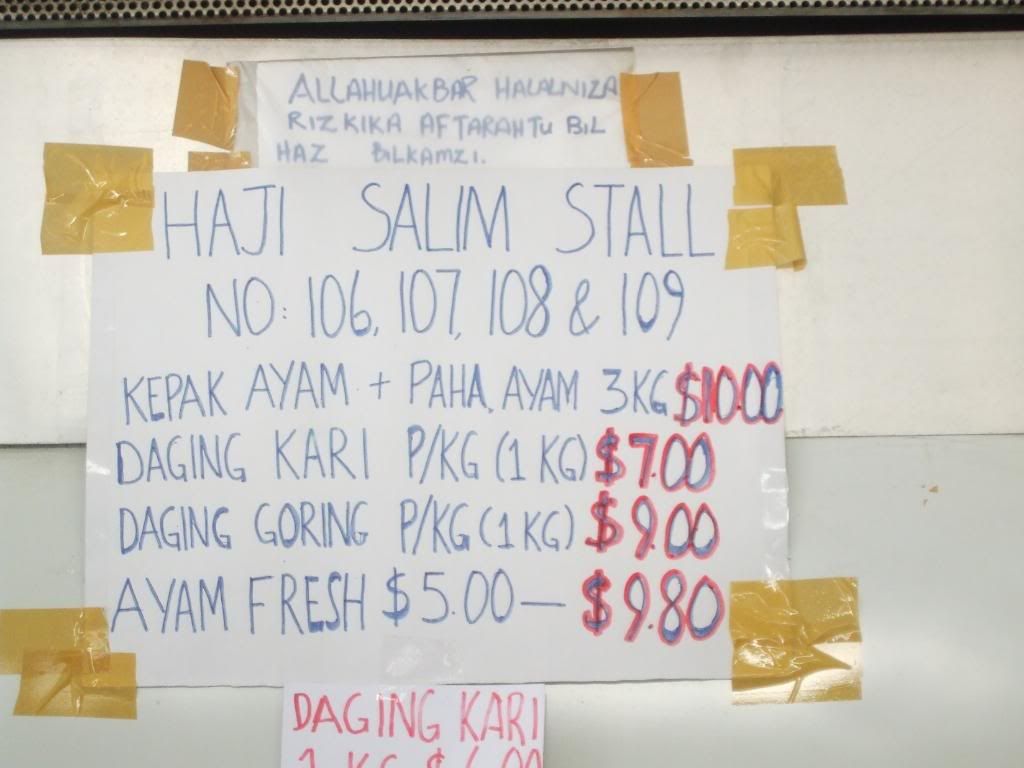 ALLAHUAKBAR HALALNIZA
RIZKIKA AFTARAHTU BIL
HAZ BILKAMZI.
HAJI SALIM STALL
NO: 106, 107, 108 & 109
KEPAK AYAM + PAHA. AYAM 3KG $10.00
DAGING KARI P/KG (1 KG) $7.00
DAGING GORING P/KG (1 KG) $9.00
AYAM FRESH $5.00 — $9.80
DAGING KARI
1 KG $